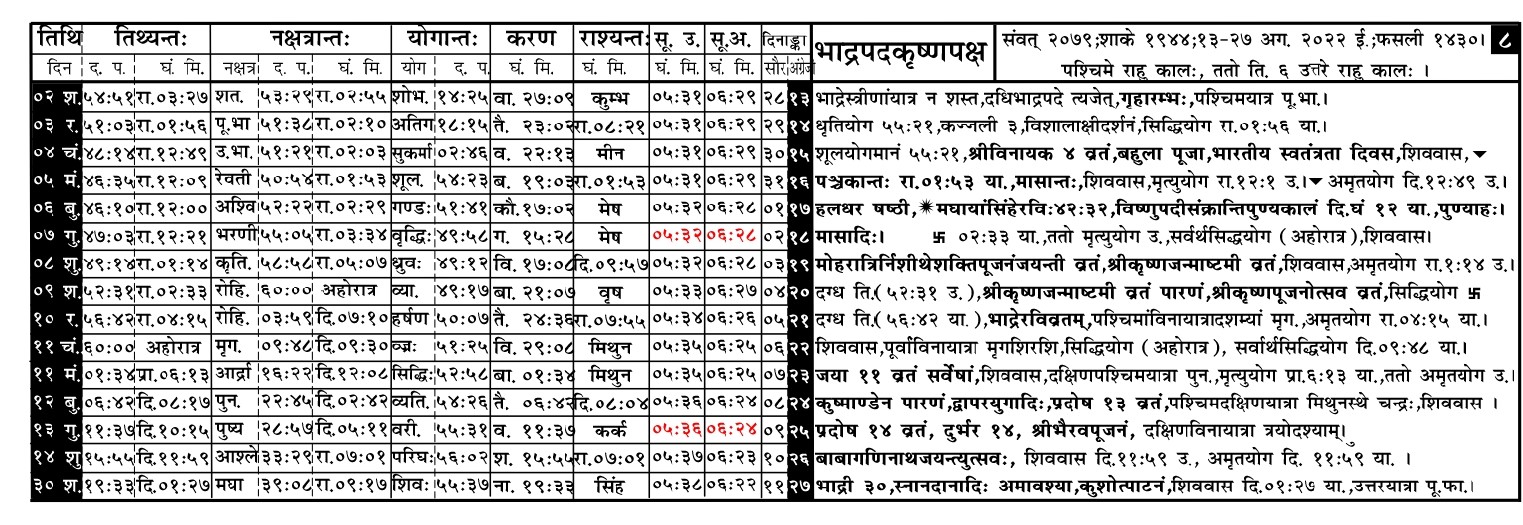 तिथि तिथ्यन्तः नक्षत्रान्तः योगान्तः करण राश्यन्तः सू. उ. सू.अ. दिनाङ्का भाद्रपदकृष्णपक्ष संवत् २०७९;शाके १९४४;१३-२७ अग. २०२२ ई.;फसली १४३०। ८
दिन द. प. घं. मि. नक्षत्र द. प. घं. मि. योग द. प. घं. मि. घं. मि. घं. मि. घं. मि. सौर अंग्रेज पश्चिमे राहु कालः, ततो ति. ६ उत्तरे राहु कालः ।
०२ श. ५४:५१ रा.०३:२७ शत. ५३:२९ रा.०२:५५ शोभ. १४:२५ वा. २७:०९ कुम्भ ०५:३१ ०६:२९ २८ १३ भाद्रेस्त्रीणांयात्रा न शस्त,दधिभाद्रपदे त्यजेत्,गृहारम्भः,पश्चिमयात्र पू.भा.।
०३ र. ५१:०३ रा.०१:५६ पू.भा ५१:३८ रा.०२:१० अतिग १८:१५ तै. २३:०२ रा.०८:२१ ०५:३१ ०६:२९ २९ १४ धृतियोग ५५:२१,कज्जली ३,विशालाक्षीदर्शनं,सिद्धियोग रा.०१:५६ या.।
०४ चं. ४८:१४ रा.१२:४९ उ.भा. ५१:२१ रा.०२:०३ सुकर्मा ०२:४६ व. २२:१३ मीन ०५:३१ ०६:२९ ३० १५ शूलयोगमानं ५५:२१,श्रीविनायक ४ व्रतं,बहुला पूजा,भारतीय स्वतंत्रता दिवस,शिववास,▾
०५ मं. ४६:३५ रा.१२:०९ रेवती ५०:५४ रा.०१:५३ शूल. ५४:२३ ब. १९:०३ रा.०१:५३ ०५:३१ ०६:२९ ३१ १६ पञ्चकान्तः रा.०१:५३ या.,मासान्तः,शिववास,मृत्युयोग रा.१२:१ उ.।▾ अमृतयोग दि.१२:४९ उ.।
०६ बु. ४६:१० रा.१२:०० अश्वि ५२:२२ रा.०२:२९ गण्डः ५१:४१ कौ. १७:०२ मेष ०५:३२ ०६:२८ ०१ १७ हलधर षष्ठी,✷मघायांसिंहेरविः४२:३२,विष्णुपदीसंक्रान्तिपुण्यकालं दि.घं १२ या.,पुण्याहः।
०७ गु. ४७:०३ रा.१२:२१ भरणी ५५:०५ रा.०३:३४ वृद्धिः ४९:५८ ग. १५:२८ मेष ०५:३२ ०६:२८ ०२ १८ मासादिः। 卐 ०२:३३ या.,ततो मृत्युयोग उ.,सर्वर्थसिद्धयोग (अहोरात्र),शिववास।
०८ शु. ४९:१४ रा.०१:१४ कृति. ५८:५८ रा.०५:०७ ध्रुवः ४९:१२ वि. १७:०८ दि.०९:५७ ०५:३२ ०६:२८ ०३ १९ मोहरात्रिर्निशीथेशक्तिपूजनंजयन्ती व्रतं,श्रीकृष्णजन्माष्टमी व्रतं,शिववास,अमृतयोग रा.१:१४ उ.।
०९ श. ५२:३१ रा.०२:३३ रोहि. ६०:०० अहोरात्र व्या. ४९:१७ बा. २१:०७ वृष ०५:३३ ०६:२७ ०४ २० दग्ध ति.(५२:३१ उ.),श्रीकृष्णजन्माष्टमी व्रतं पारणं,श्रीकृष्णपूजनोत्सव व्रतं,सिद्धियोग 卐
१० र. ५६:४२ रा.०४:१५ रोहि. ०३:५९ दि.०७:१० हर्षण ५०:०७ तै. २४:३६ रा.०७:५५ ०५:३४ ०६:२६ ०५ २१ दग्ध ति.(५६:४२ या.),भाद्रेरविव्रतम्,पश्चिमांविनायात्रादशम्यां मृग.,अमृतयोग रा.०४:१५ या.।
११ चं. ६०:०० अहोरात्र मृग. ०९:४८ दि.०९:३० व्ज्रः ५१:२५ वि. २९:०८ मिथुन ०५:३५ ०६:२५ ०६ २२ शिववास,पूर्वांविनायात्रा मृगशिरशि,सिद्धियोग (अहोरात्र), सर्वार्थसिद्धियोग दि.०९:४८ या.।
११ मं. ०१:३४ प्रा.०६:१३ आर्द्रा १६:२२ दि.१२:०८ सिद्धिः ५२:५८ बा. ०१:३४ मिथुन ०५:३५ ०६:२५ ०७ २३ जया ११ व्रतं सर्वेषां,शिववास,दक्षिणपश्चिमयात्रा पुन.,मृत्युयोग प्रा.६:१३ या.,ततो अमृतयोग उ.।
१२ बु. ०६:४२ दि.०८:१७ पुन. २२:४५ दि.०२:४२ व्यति. ५४:२६ तै. ०६:४२ दि.०८:०४ ०५:३६ ०६:२४ ०८ २४ कुष्माण्डेन पारणं,द्वापरयुगादिः,प्रदोष १३ व्रतं,पश्चिमदक्षिणयात्रा मिथुनस्थे चन्द्रः,शिववास ।
१३ गु. ११:३७ दि.१०:१५ पुष्य २८:५७ दि.०५:११ वरी. ५५:३१ व. ११:३७ कर्क ०५:३६ ०६:२४ ०९ २५ प्रदोष १४ व्रतं, दुर्भर १४, श्रीभैरवपूजनं, दक्षिणविनायात्रा त्रयोदश्याम्।
१४ शु १५:५५ दि.११:५९ आश्ले ३३:२९ रा.०७:०१ परिघः ५६:०२ श. १५:५५ रा.०७:०१ ०५:३७ ०६:२३ १० २६ बाबागणिनाथजयन्त्युत्सवः, शिववास दि.११:५९ उ., अमृतयोग दि. ११:५९ या. ।
३० श. १९:३३ दि.०१:२७ मघा ३९:०८ रा.०९:१७ शिवः ५५:३७ ना. १९:३३ सिंह ०५:३८ ०६:२२ ११ २७ भाद्री ३०,स्नानदानादिः अमावश्या,कुशोत्पाटनं,शिववास दि.०१:२७ या.,उत्तरयात्रा पू.फा.।